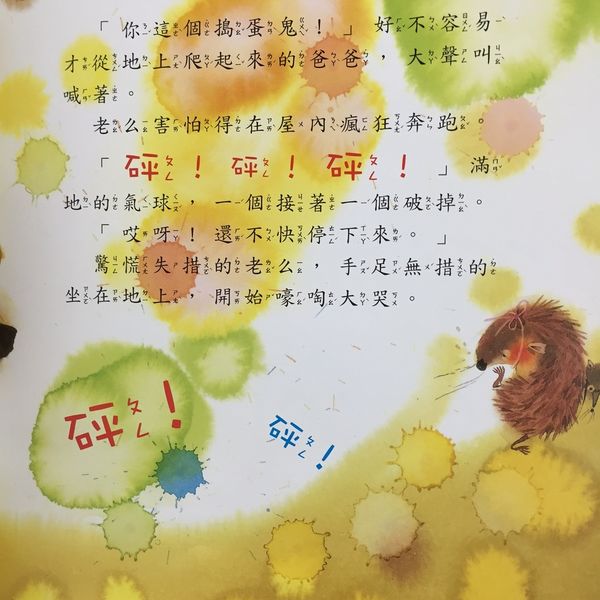 「你這個搗蛋鬼！」好不容易
才從地上爬起來的爸爸，大聲叫
喊著。
老么害怕得在屋內瘋狂奔跑。
「砰！砰！砰！」滿
地的氣球，一個接著一個破掉。
「哎呀！還不快停下來。」
驚慌失措的老么，手足無措的
坐在地上，開始嚎啕大哭。
砰！
砰！